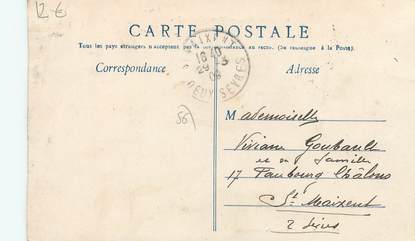 12 €
CARTE POSTALE
Tous les pays étrangers n'acceptent pas la correspondance au recto. (Se renseigner à la Poste).
Correspondance
Adresse
MAIXENT
16 40
29 -3
09
DEUX SEVRES
56
Mademoiselle
Viviane Goubault
et sa famille
17 Faubourg Châlons
St Maixent
2 Sèvres